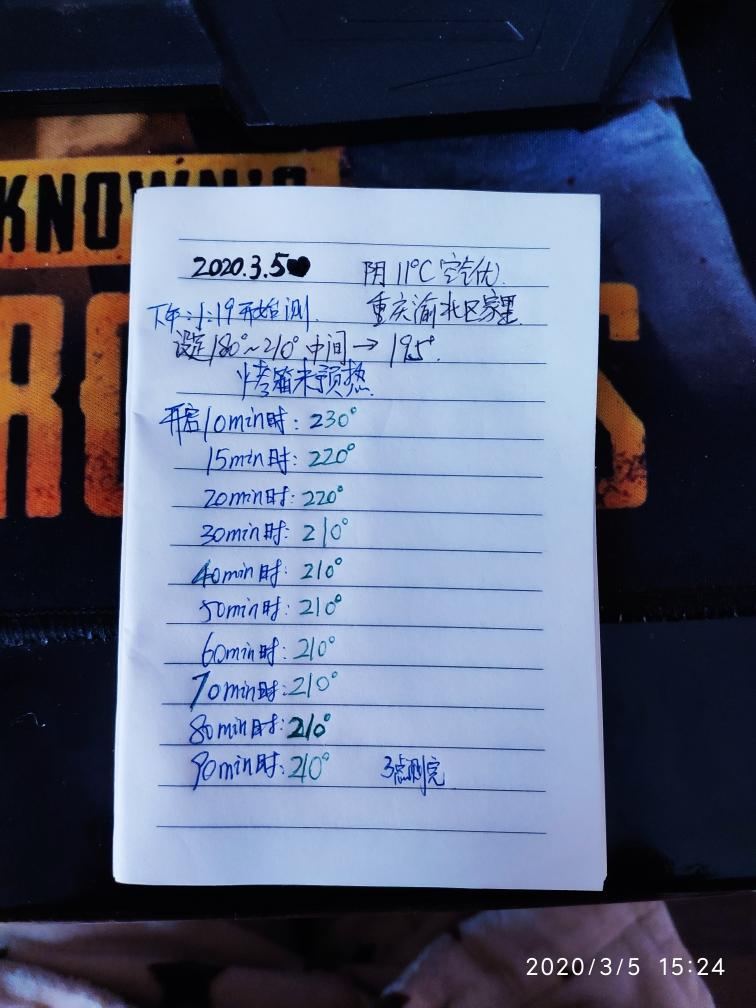 KNOWN'S
2020.3.5♥ 阴 11°C 空气优.
下午:1:19开始测. 重庆渝北区家里.
设定180°~210° 中间→ 195°.
烤箱未预热.
开启10min时: 230°
15min时: 220°
20min时: 220°
30min时: 210°
40min时: 210°
50min时: 210°
60min时: 210°
70min时: 210°
80min时: 210°
90min时: 210° 3点测完
2020/3/5 15:24